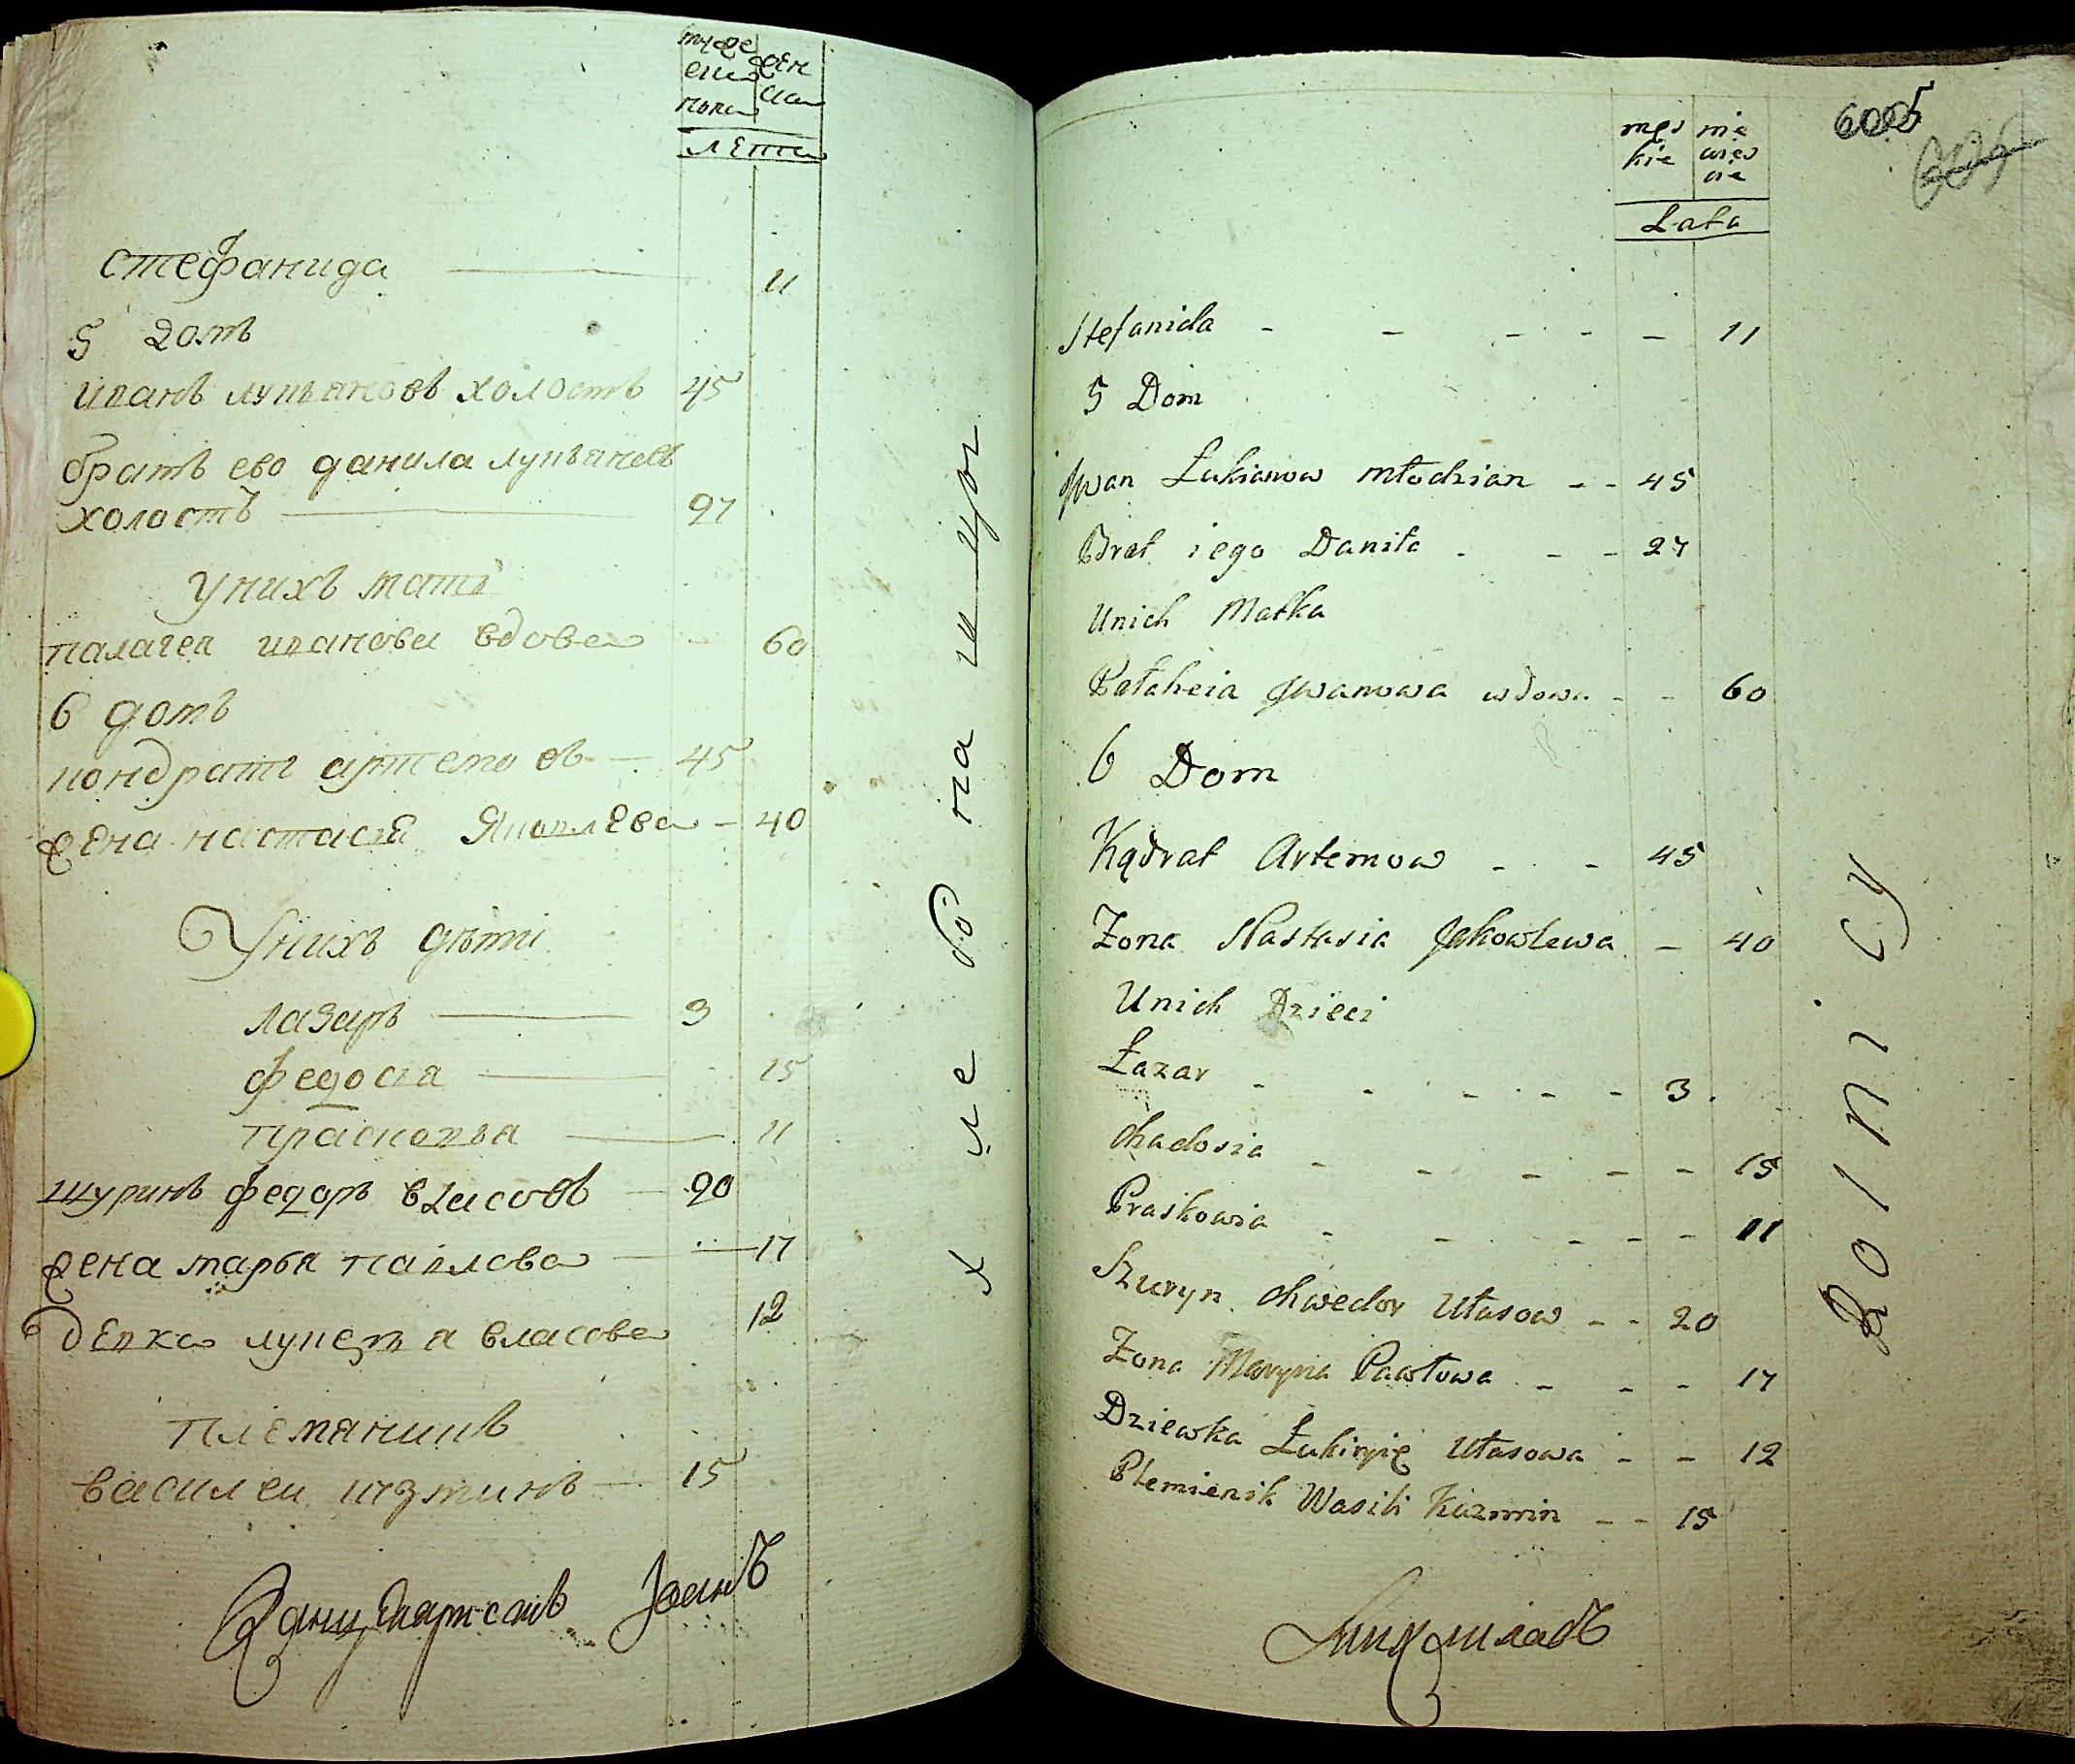 муже жен
ски ска
пола
лета
Стефанида 11
5 домъ
иванъ лукьяновъ холостъ 45
братъ ево данила лукьяновъ
холостъ 27
у нихъ мать
палагея иванова вдова 60
6 домъ
кондратъ артемовъ 45
жена настасея Яковлева 40
У нихъ дѣти
лазарь 3
федосия 15
прасковья 11
шуринъ федоръ власовъ 20
жена марья павлова 17
девка лукерья власова 12
племянникъ
василеи кузминъ 15
Іоаннъ
хле
ба
męs nie
kie wieś
cie
Lata
6005
605
Stefanida - - - - - 11
5 Dom
Jwan Łukianow młodzian - - 45
Brat iego Daniła - - - 27
Unich Matka
Pałaheia Jwanowa wdowa - - 60
6 Dom
Kądrat Artemow - - 45
Żona Nastasia Jakowlewa - 40
Unich Dzieci
Łazar - - - - - 3
Chadosia - - - - - 15
Praskowia - - - - - 11
Szuryn Chwedor Ułasow - - 20
Żona Maryna Pawłowa - - - 17
Dziewka Łukiryię Ułasowa - - 12
Plemienik Wasili Kuzmin - - 15
Rolnicy